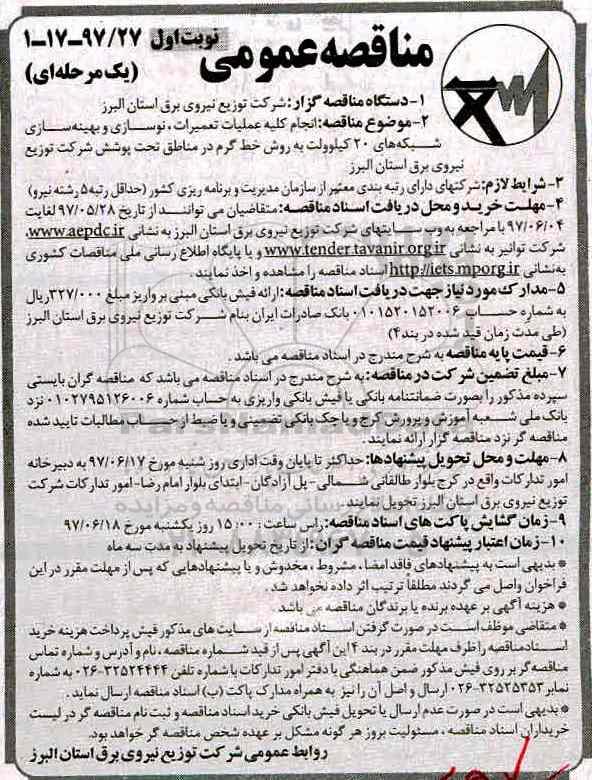 مناقصه عمومی
نوبت اول ۲۷/ ۹۷-۱۷-۱
(یک مرحله‌ای)
۱- دستگاه مناقصه گزار: شرکت توزیع نیروی برق استان البرز
۲- موضوع مناقصه: انجام کلیه عملیات تعمیرات، نوسازی و بهینه سازی
شبکه‌های ۲۰ کیلوولت به روش خط گرم در مناطق تحت پوشش شرکت توزیع
نیروی برق استان البرز
۳- شرایط لازم: شرکتهای دارای رتبه بندی معتبر از سازمان مدیریت و برنامه ریزی کشور (حداقل رتبه ۵ رشته نیرو)
۴- مهلت خرید و محل دریافت اسناد مناقصه: متقاضیان می توانند از تاریخ ۹۷/۰۵/۲۸ لغایت
۹۷/۰۶/۰۴ با مراجعه به وب سایتهای شرکت توزیع نیروی برق استان البرز به نشانی www.aepdc.ir،
شرکت توانیر به نشانی www.tender.tavanir.org.ir و یا پایگاه اطلاع رسانی ملی مناقصات کشوری
به‌نشانی http://iets.mporg.ir اسناد مناقصه را مشاهده و اخذ نمایند.
۵- مدارک مورد نیاز جهت دریافت اسناد مناقصه: ارائه فیش بانکی مبنی بر واریز مبلغ ۳۲۷/۰۰۰ ریال
به شماره حساب ۰۱۰۱۵۲۰۱۵۲۰۰۶ بانک صادرات ایران بنام شرکت توزیع نیروی برق استان البرز
(طی مدت زمان قید شده در بند ۴)
۶- قیمت پایه مناقصه به شرح مندرج در اسناد مناقصه می باشد.
۷- مبلغ تضمین شرکت در مناقصه: به شرح مندرج در اسناد مناقصه می باشد که مناقصه گران بایستی
سپرده مذکور را بصورت ضمانتنامه بانکی یا فیش بانکی واریزی به حساب شماره ۰۱۰۲۷۹۵۱۲۶۰۰۶ نزد
بانک ملی شعبه آموزش و پرورش کرج و یا چک بانکی تضمینی و یا ضبط از حساب مطالبات تایید شده
مناقصه گر نزد مناقصه گزار ارائه نمایند.
۸- مهلت و محل تحویل پیشنهادها: حداکثر تا پایان وقت اداری روز شنبه مورخ ۹۷/۰۶/۱۷ به دبیرخانه
امور تدارکات واقع در کرج بلوار طالقانی شمالی- پل آزادگان- ابتدای بلوار امام رضا- امور تدارکات شرکت
توزیع نیروی برق استان البرز تحویل نمایند.
۹- زمان گشایش پاکت های اسناد مناقصه: راس ساعت: ۱۵:۰۰ روز یکشنبه مورخ ۹۷/۰۶/۱۸
۱۰- زمان اعتبار پیشنهاد قیمت مناقصه گران: از تاریخ تحویل پیشنهاد به مدت سه ماه
* بدیهی است به پیشنهادهای فاقد امضا، مشروط، مخدوش و یا پیشنهادهایی که پس از مهلت مقرر در این
فراخوان واصل می گردند مطلقاً ترتیب اثر داده نخواهد شد.
* هزینه آگهی بر عهده برنده یا برندگان مناقصه می باشد.
* متقاضی موظف است در صورت گرفتن اسناد مناقصه از سایت های مذکور فیش پرداخت هزینه خرید
اسناد مناقصه را ظرف مهلت مقرر در بند ۴ این آگهی پس از قید شماره مناقصه، نام و آدرس و شماره تماس
مناقصه گر بر روی فیش مذکور ضمن هماهنگی با دفتر امور تدارکات با شماره تلفن ۳۲۵۲۴۴۴۴-۰۲۶ به شماره
نمابر ۳۲۵۲۵۳۵۳-۰۲۶ ارسال و اصل آن را نیز به همراه مدارک پاکت (ب) اسناد مناقصه ارسال نماید.
* بدیهی است در صورت عدم ارسال یا تحویل فیش بانکی خرید اسناد مناقصه و ثبت نام مناقصه گر در لیست
خریداران اسناد مناقصه، مسئولیت بروز هر گونه مشکل بر عهده شخص مناقصه گر خواهد بود.
روابط عمومی شرکت توزیع نیروی برق استان البرز